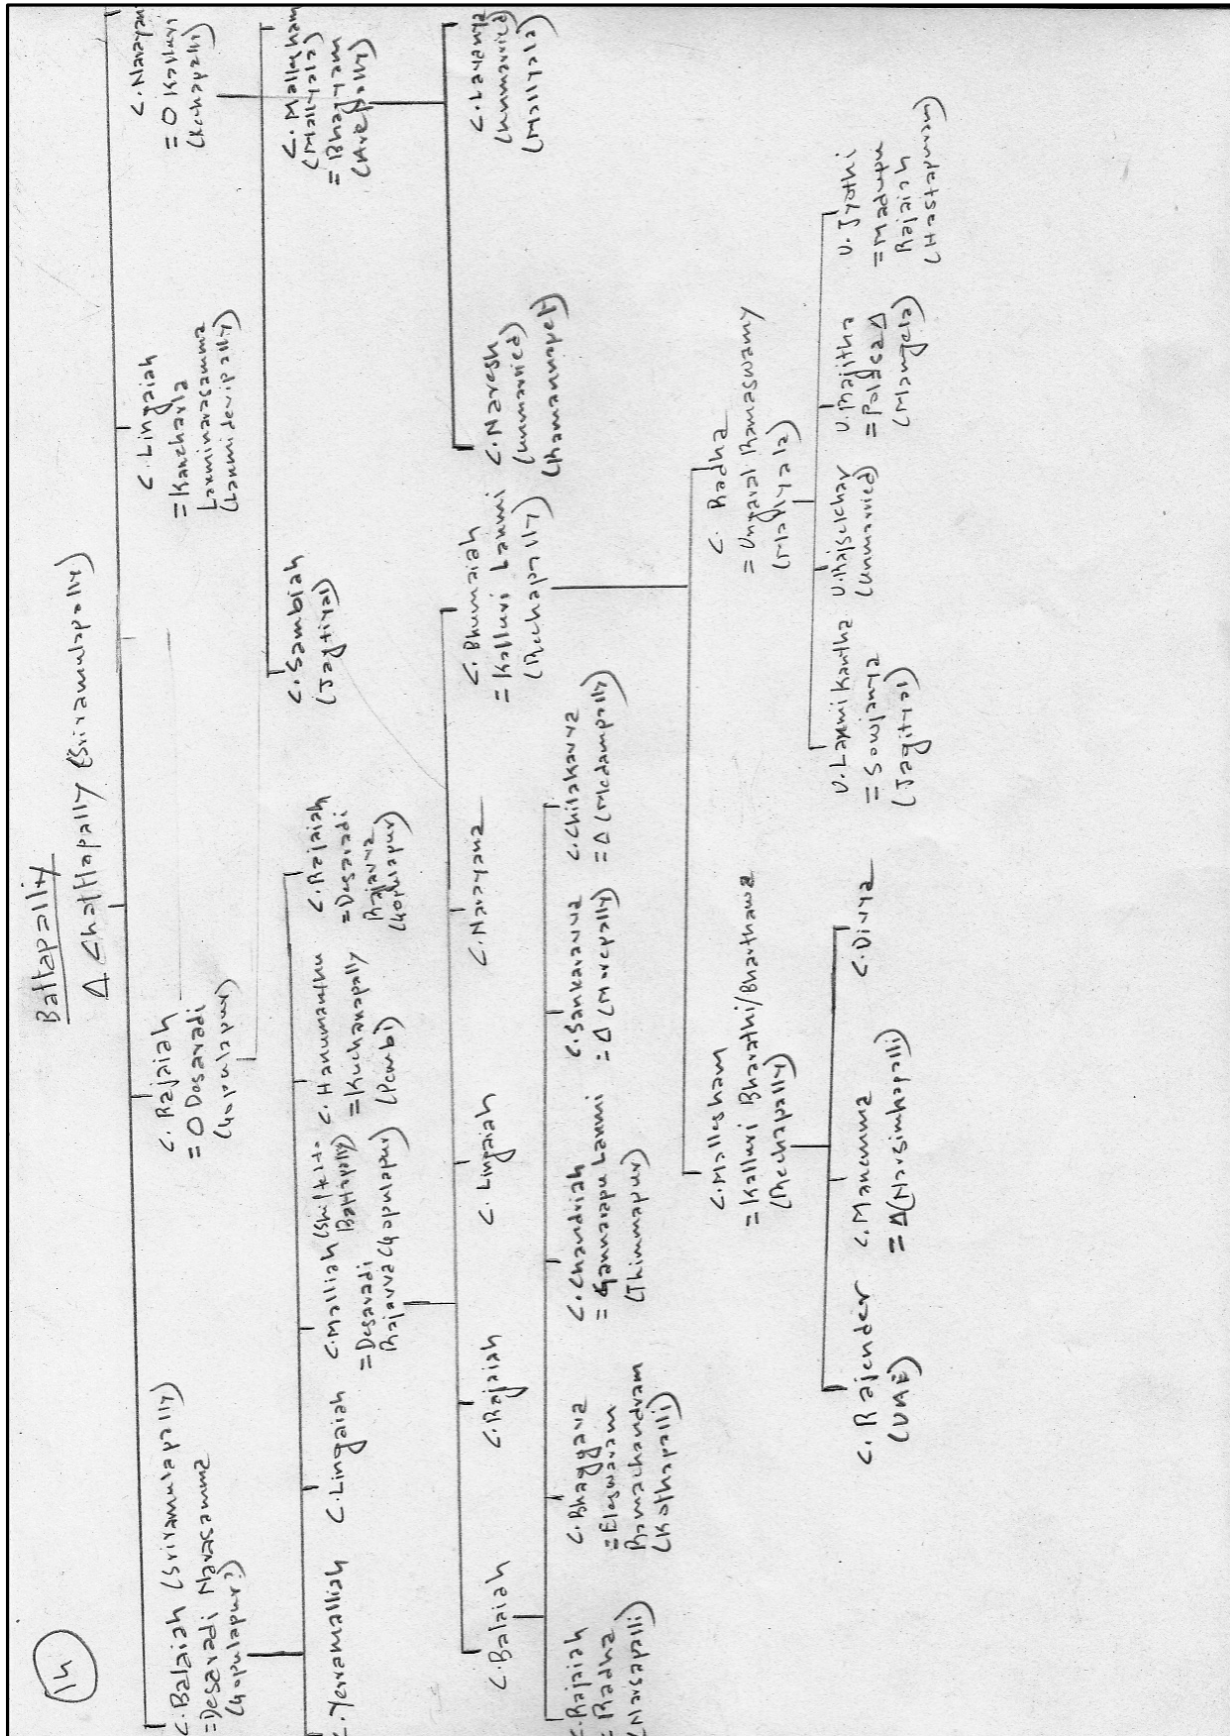 14
Battapally
Δ Chattapally (Sriramulapally)
C. Balaiah (Sriramulapally)
=Desaradi Narasamma
(Gopulapur)
C. Rajaiah
= O Desaradi
(Gopulapur)
C. Lingaiah
=Kancharla
Laxminarasamma
(Laxmidevipally)
C. Narayan
= O Kalluri
(Rechapalli)
C. Yerramalliah
C. Lingaiah
C. Malliah (Shift to
Battapally)
=Desaradi
Rajavva (Gopulapur)
C. Hanumanthu
=Kuchanapally
(Pembi)
C. Rajaiah
=Desaradi
Rajavva
(Gopulapur)
C. Sambiah
(Jagtiyal)
C. Mallesham
(Mallyala)
= Bhagyam
(Arepally)
C. Balaiah
C. Rajaiah
C. Lingaiah
C. Narayana
C. Bhumaiah
= Kalluri Laxmi
(Rechapally)
C. Naresh
(Unmarried)
(Ramannapet)
C. Lavanya
(Unmarried)
(Mallyala)
C. Rajaiah
= Radha
(Narsapalli)
C. Bhaggava
=Eleswaram
Ramachandram
(Kothapalli)
C. Chandriah
= Gannarapu Laxmi
(Thimmapur)
C. Sankaravva
= Δ (Morepally)
C. Chilakavva
= Δ (Medampally)
C. Mallesham
= Kalluri Bharathi/Bharthawa
(Rechapally)
C. Radha
= Ungaral Ramaswamy
(Mallyala)
C. Rajender
(UAE)
C. Manemma
= Δ (Narsimhapalli)
C. Divya
U. Laxmikantha
= Sowjanya
(Jagityal)
U. Rajsekhar
(Unmarried)
U. Rajitha
=Polasa Δ
(Mangela)
U. Jyothi
=Madupu
Rajaiah
(Hastapuram)